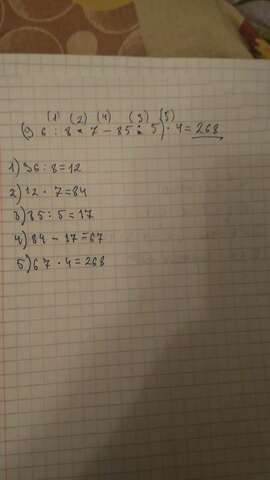 (1) (2) (4) (3) (5)
(96 : 8 · 7 - 85 : 5) · 4 = 268
1) 96 : 8 = 12
2) 12 · 7 = 84
3) 85 : 5 = 17
4) 84 - 17 = 67
5) 67 · 4 = 268